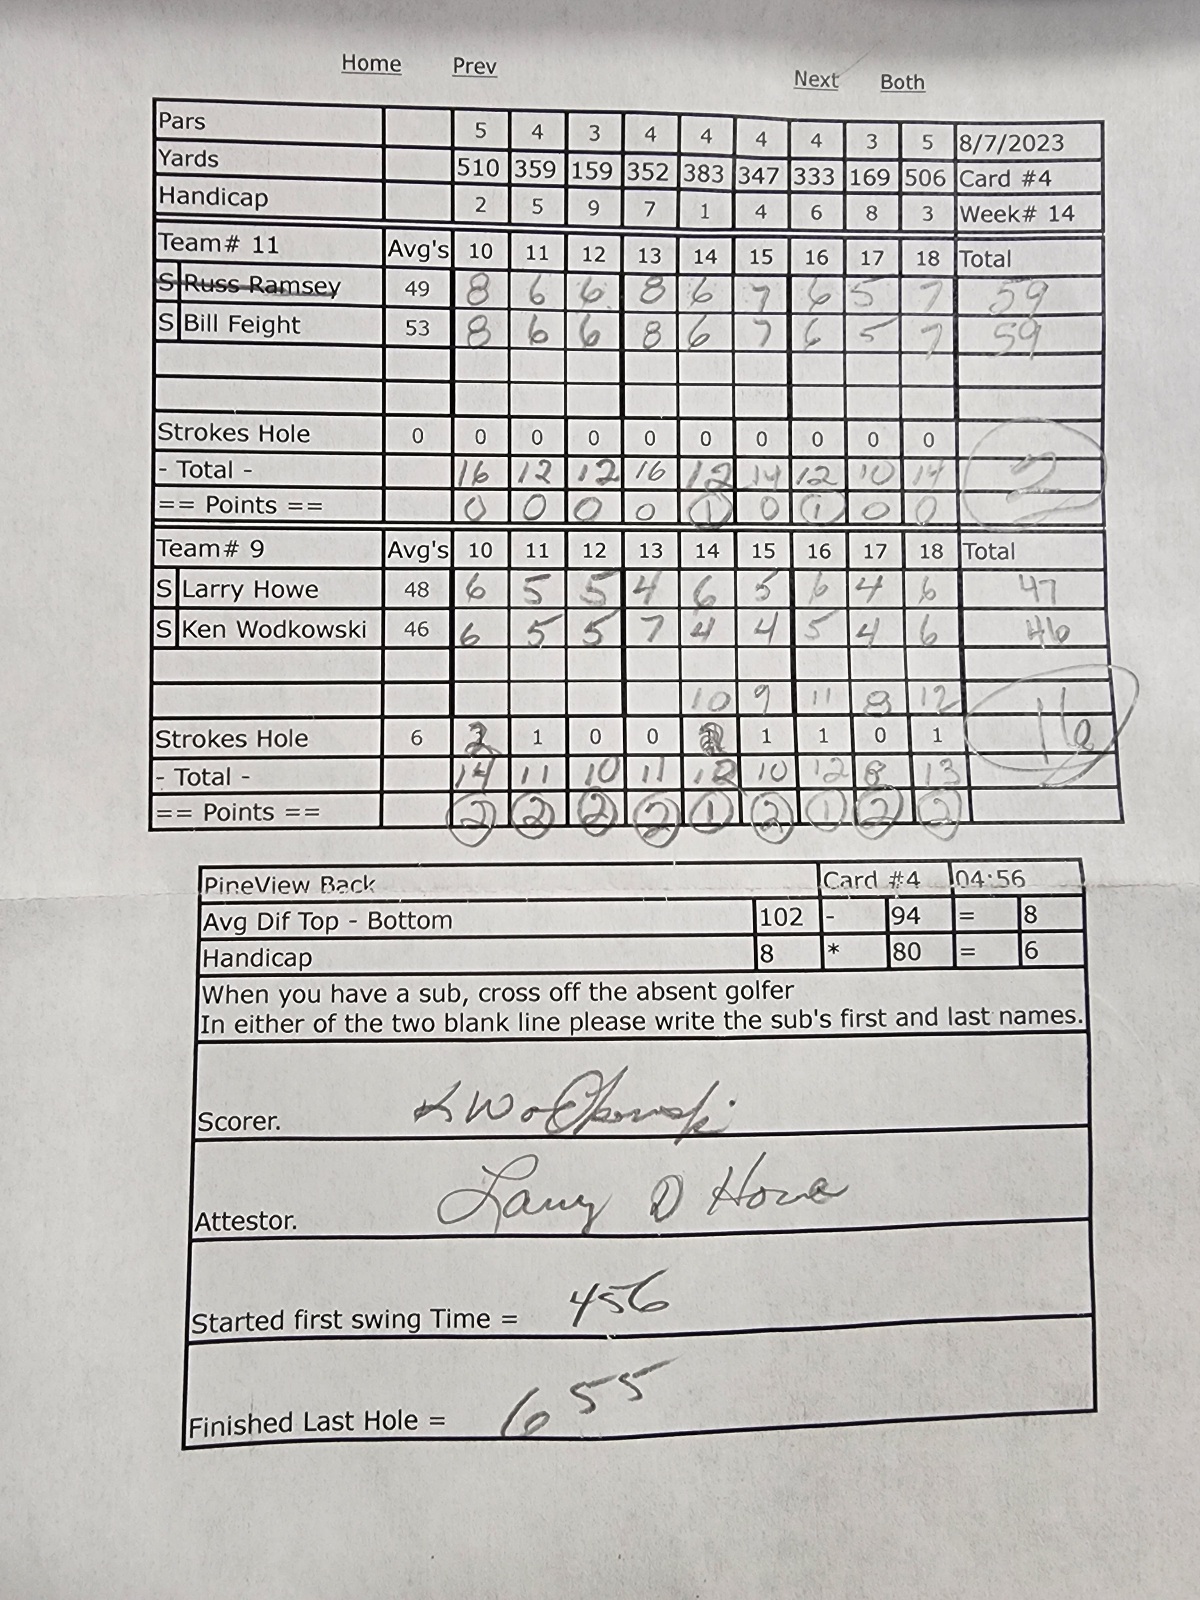 Home Prev Next Both
Pars 5 4 3 4 4 4 4 3 5 8/7/2023
Yards 510 359 159 352 383 347 333 169 506 Card #4
Handicap 2 5 9 7 1 4 6 8 3 Week# 14
Team# 11 Avg's 10 11 12 13 14 15 16 17 18 Total
S Russ Ramsey 49 8 6 6 8 6 7 6 5 7 59
S Bill Feight 53 8 6 6 8 6 7 6 5 7 59
Strokes Hole 0 0 0 0 0 0 0 0 0 0
- Total - 16 12 12 16 12 14 12 10 14 2
== Points == 0 0 0 0 1 0 1 0 0
Team# 9 Avg's 10 11 12 13 14 15 16 17 18 Total
S Larry Howe 48 6 5 5 4 6 5 6 4 6 47
S Ken Wodkowski 46 6 5 5 7 4 4 5 4 6 46
10 9 11 8 12 16
Strokes Hole 6 1 0 0 1 1 0 1
- Total - 14 11 10 11 12 10 12 8 13
== Points == 2 2 2 2 1 2 1 2 2
PineView Back Card #4 04:56
Avg Dif Top - Bottom 102 - 94 = 8
Handicap 8 * 80 = 6
When you have a sub, cross off the absent golfer
In either of the two blank line please write the sub's first and last names.
Scorer. K Wodkowski
Attestor. Larry D Howe
Started first swing Time = 456
Finished Last Hole = 655